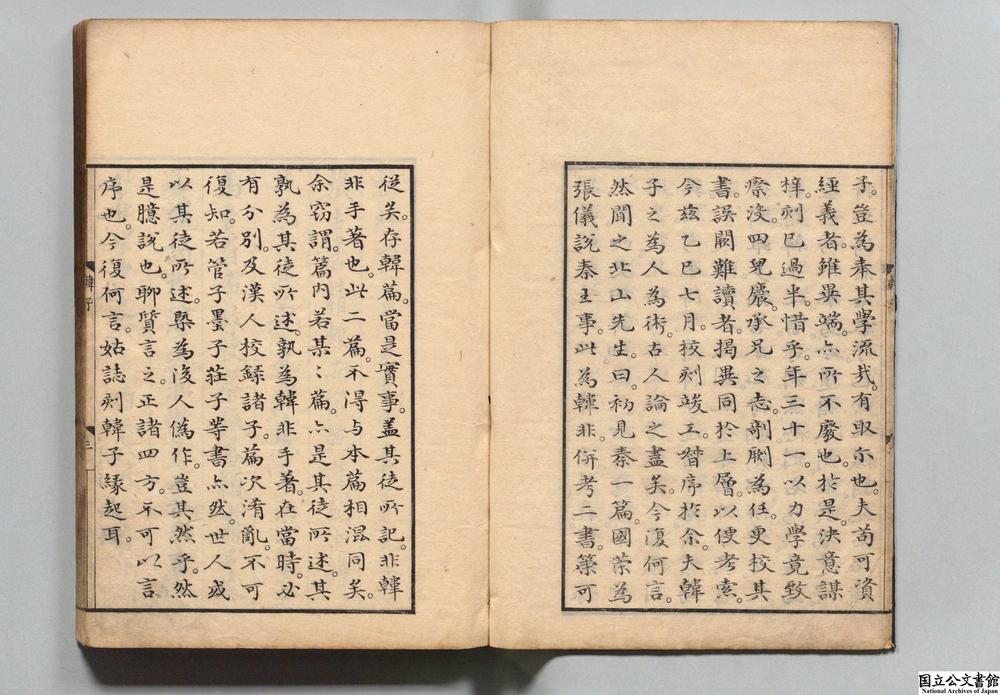 子。豈為奉其學流哉。有取尓也。夫苟可資
經義者。雖異端。亦所不廢也。於是決意謀
梓。刻已過半。惜乎。年三十一。以力學竟致
瘵沒。四兄農。承兄之志。剞劂為任。更校其
書。誤闕難讀者。揭異同於上層。以便考索。
今茲乙巳七月。校刻竣工。晉序於余。夫韓
子之為人為術。古人論之盡矣。今復何言。
然聞之北山先生。曰。初見秦一篇。國策為
張儀說秦王事。此為韓非。併考二書。策可
從矣。存韓篇。當是實事。盖其徒所記。非韓
非手著也。此二篇。不得与本篇相混同矣。
余窃謂。篇内若某〻篇。亦是其徒所述。其
孰為其徒所述。孰為韓非手著。在當時。必
有分別。及漢人校録諸子。篇次淆亂。不可
復知。若管子墨子莊子等書亦然。世人或
以其徒所述。槩為後人偽作。豈其然乎。然
是臆說也。聊質言之。正諸四方。不可以言
序也。今復何言。姑誌刻韓子緣起耳。
韓子
三
国立公文書館
National Archives of Japan